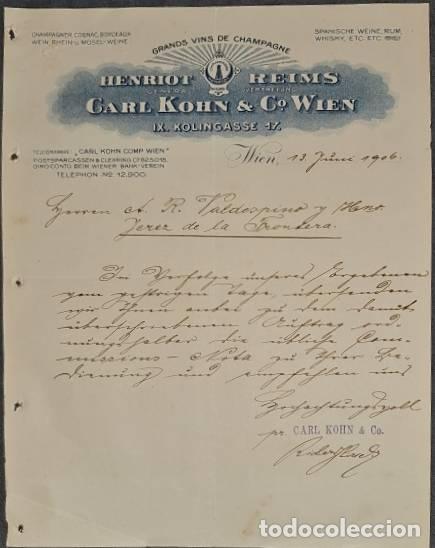 CHAMPAGNER, COGNAC, BORDEAUX
WEIN, RHEIN- U. MOSEL-WEINE
GRANDS VINS DE CHAMPAGNE
SPANISCHE WEINE, RUM,
WHISKY, ETC. ETC.
HENRIOT REIMS
GENERAL VERTRETUNG
CARL KOHN & Co WIEN
IX. KOLINGASSE 17.
TELEGRAMME: "CARL KOHN COMP WIEN"
POSTSPARCASSEN & CLEARING
GIRO CONTO BEIM WIENER BANK-VEREIN
TELEPHON No 12.900.
Wien, 13. Juni 1906.
Herren A. R. Valdespino y Hno.
Jerez de la Frontera.
Im Verfolge unseres Ergebenen
vom gestrigen Tage, übersenden
wir Ihnen anbei zu dem damit
überschriebenen Auftrag ord-
nungshalber die übliche Com-
missions-Nota zu Ihrer Be-
dienung und empfehlen uns
Hochachtungsvoll
pr. CARL KOHN & Co.
todocoleccion.net